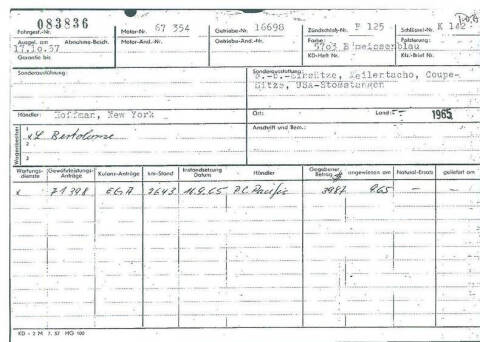 083836
Fahrgest.-Nr. Motor-Nr. 67 354 Getriebe-Nr. 16698 Zündschloß-Nr. F 125 Schlüssel-Nr. K 142
Ausgel. am Abnahme-Besch. Motor-Änd.-Nr. Getriebe-Änd.-Nr. Farbe: Polsterung:
17.10.57 5703
Garantie bis KD-Heft Nr. KD-Brief Nr.
Sonderausführung: Sonderausstattung:
Coupe-
Sitze, USA-Stosstangen
Händler: Hoffman, New York Ort: Land: 1965
Wagenbesitzer 1 Anschrift und Bem.:
2
3
Wartungs-dienste Gewährleistungs-Anträge Kulanz-Anträge km-Stand Instandsetzung Datum Händler Gegebener Betrag angewiesen am Natural-Ersatz geliefert am
x 71398 EGA 2643 11.9.65 P.C. Pacific 3987 9.65 — —
KD - 2 M 7. 57 HG 100